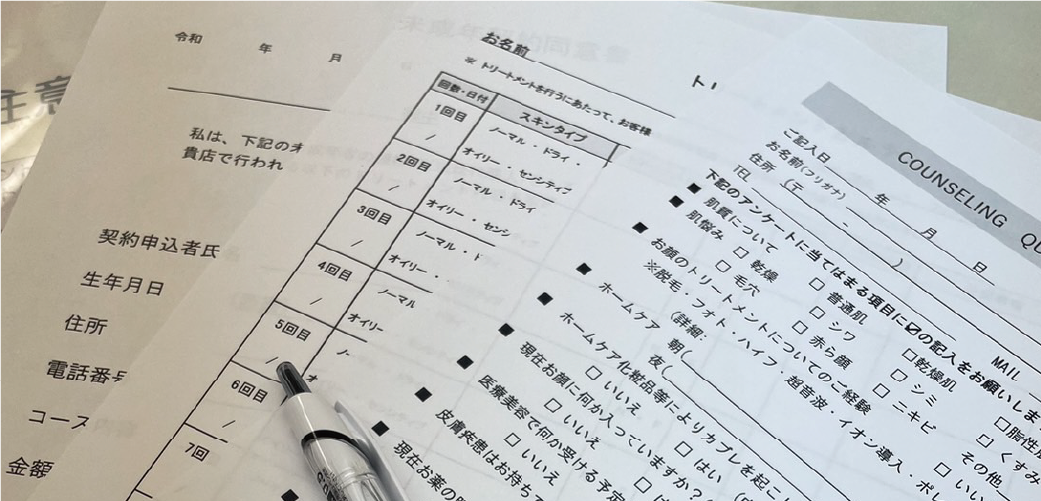 注意
令和 年 月
私は、下記の未
貴店で行われ
契約申込者氏
生年月日
住所
電話番号
コース
金額
未成年契約同意書
お名前
※ トリートメントを行うにあたって、お客様
回数・日付 スキンタイプ
1回目 ノーマル ・ ドライ ・
/ オイリー ・ センシティブ
2回目 ノーマル ・ ドライ
/ オイリー ・ センシ
3回目 ノーマル ・ ド
/ オイリー ・
4回目 ノーマル
/ オイリー
5回目 ノー
/ オ
6回目
/
7回
トリ
COUNSELING QU
ご記入日 年 月 日
お名前(フリガナ)
住所 (〒 - )
TEL MAIL
下記のアンケートに当てはまる項目に☑の記入をお願いしま
■ 肌質について □ 乾燥 □ 普通肌 □乾燥肌 □脂性肌
■ 肌悩み □ 毛穴 □ シワ □ シミ □ くすみ
□ 赤ら顔 □ ニキビ □ その他
■ お顔のトリートメントについてのご経験 □ いい
※脱毛・フォト・ハイフ・超音波・イオン導入・ポ
(詳細:
■ ホームケア 朝(
夜(
■ ホームケア化粧品等によりカブレを起こ
□ いいえ □ はい
■ 現在お顔に何か入っていますか?
□ いいえ □ はい
■ 医療美容で何か受ける予定
□ いいえ □ は
■ 皮膚疾患はお持ち
■ 現在お薬の